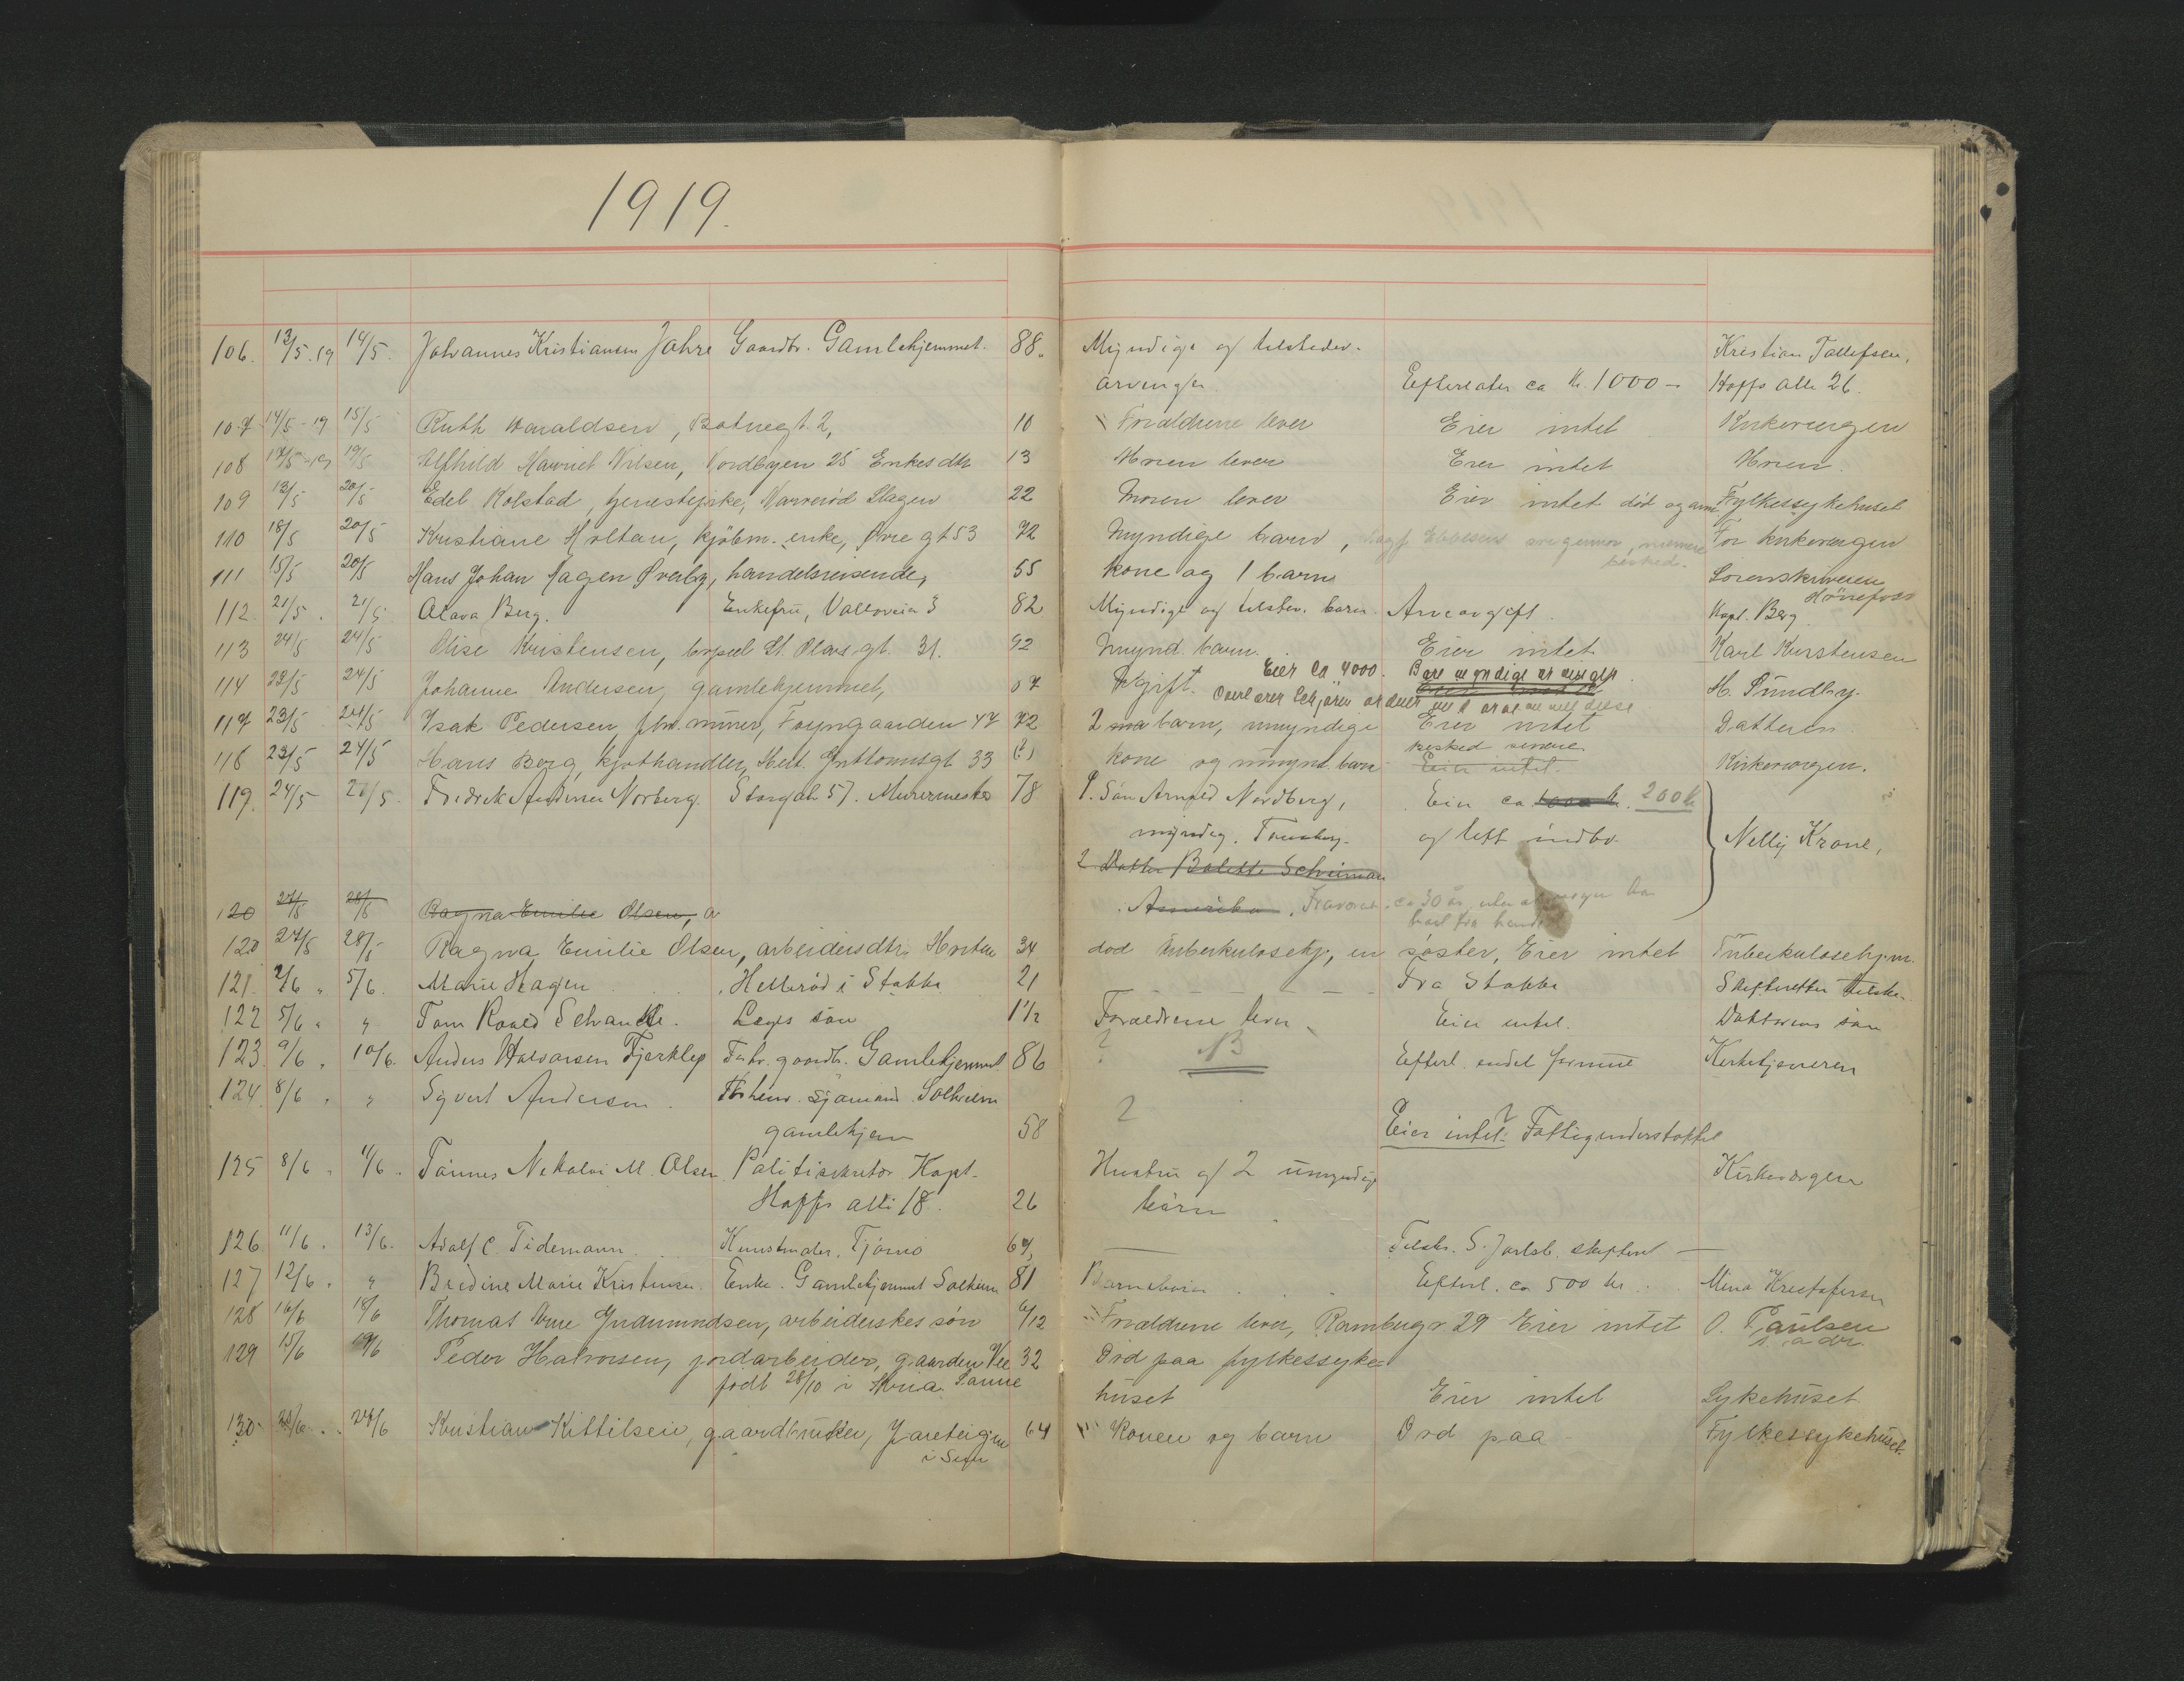 1919.
106. 13/5.19 14/5. Johannes Kristiansen Jahre Gaardbr. Gamlehjemmet. 88. Myndige og tilstedev. Kristian Tollefsen,
arvinger. Efterlater ca kr. 1000 - Hoffs alle 26.
107 14/5-19 15/5 Ruth Haraldsen, Botnegt. 2, 10 Forældrene lever Eier intet Kirkevergen
108 17/5-19 19/5 Alfhild Harriet Nilsen, Nordbyen 25 Enkes dtr 13 Moren lever Eier intet Moren.
109 13/5 20/5 Edel Kolstad, tjenestepike, Narverød Slagen 22 Moren lever Eier intet død og Fylkessykehuset
110 18/5 20/5 Kristiane Holtan, kjöbm. enke, Øvre gt 53 72 Myndige barn, For kirkevergen
besked.
111 15/5 20/5 Hans Johan Hagen Øverby, handelsreisende, 55 kone og 1 barn Sorenskriveren
Hönefoss
112. 21/5. 21/5 Olava Berg. Enkefru, Valløveien 3 82 Myndige og tilstev. barn. Arveavgift. Kapt. Berg.
113 24/5 24/5 Olise Kristensen, St. Olavs gt. 31. 92 Mynd. barn. Eier intet Karl Kristensen
Eier ca 4000. Bare myndige arvinger.
114 22/5 24/5 Johanne Andersen, gamlehjemmet, 87 Ugift. H. Sundby.
117 23/5 24/5 Isak Pedersen, fhv. murer, Foyngaarden 47 72 2 barn, umyndige Eier intet Datteren
besked senere
118 23/5 24/5 Hans Berg, kjøthandler, Guttormsgt 33 kone og umynd. barn Eier intet. Kirkevergen.
119. 24/5 28/5. Fredrik Andersen Norberg. Storgat. 57. Murermester 78 1. Sön Arnold Nordberg, Eier ca 200 kr
myndig. Tønsberg. og litt indbo. Nelly Krone,
2 Datter Bolette
Amerika. ca 30 aar
120 27/5 28/5 Ragna Emilie Olsen, a
120 27/5 28/5 Ragna Emilie Olsen, arbeidersdtr. Horten 34 død tuberkulosehj., en søster, Eier intet Tuberkulosehjem.
121. 2/6 " 5/6. Marie Hagen Hellerød i Stokke 21 - - - Fra Stokke Skifteretten
122 5/6 " " Tom Roald Schancke. Læges søn 1 1/2 Forældrene lever Eier intet. Doktorens søn
123. 9/6 " 10/6. Anders Halvorsen Fjerkley Forhv. gaardb. Gamlehjemmet 86 ? NB Efterl. endel penne Kirketjeneren
124. 8/6 " " Syvert Andersen. Forhenv. sjömand. Solheim
gamlehjem 58 ? Eier intet. Fattigunderstöttet
125 8/6 " 11/6. Tönnes Nikolai M. Olsen Politisekretær Kapt.
Hoffs allé 18. 26 Hustru og 2 umyndige börn Kirkevergen
126 11/6. 13/6. Adolf C. Tidemann Kunstmaler. Tjömö Tilstr. S. Jarlsb. skifteret -
127 12/6. " Bredine Marie Kristensen Enke. Gamlehjemmet Solheim 81 Barnebarn Efterl. ca 500 kr. Mina Kristofersen
128 16/6 18/6 Thomas Arne Gudmundsen, arbeiderskes sön 6/12 Forældrene lever, Rambergv 29 Eier intet O. Paulsen
s. adr.
129 15/6 19/6 Peder Halvorsen, jordarbeider, gaarden Vee 32 Død paa fylkessyke-
født 28/10 i Sanne huset Eier intet Sykehuset
130 24/6 Kristian Kittilsen, gaardbruker, Jareteigen 64 Konen og barn Død paa Fylkessykehuset
i Sem